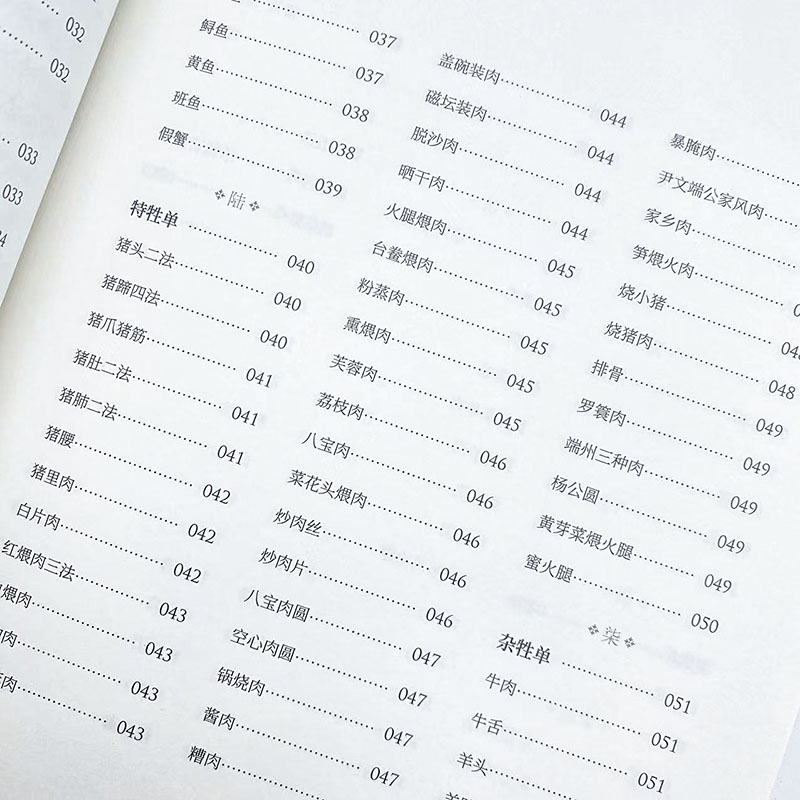 032
032
033
033
037
鲟鱼……037
黄鱼……038
班鱼……038
假蟹……039
陆
特牲单……040
猪头二法……040
猪蹄四法……040
猪爪猪筋……041
猪肚二法……041
猪肺二法……041
猪腰……042
猪里肉……042
白片肉……042
红煨肉三法……043
煨肉……043
肉……043
肉……043
盖碗装肉……044
磁坛装肉……044
脱沙肉……044
晒干肉……044
火腿煨肉……045
台鲞煨肉……045
粉蒸肉……045
熏煨肉……045
芙蓉肉……045
荔枝肉……046
八宝肉……046
菜花头煨肉……046
炒肉丝……046
炒肉片……046
八宝肉圆……047
空心肉圆……047
锅烧肉……047
酱肉……047
糟肉……
暴腌肉……
尹文端公家风肉……
家乡肉……
笋煨火肉……
烧小猪……
烧猪肉……048
排骨……049
罗蓑肉……049
端州三种肉……049
杨公圆……049
黄芽菜煨火腿……049
蜜火腿……050
柒
杂牲单……051
牛肉……051
牛舌……051
羊头……